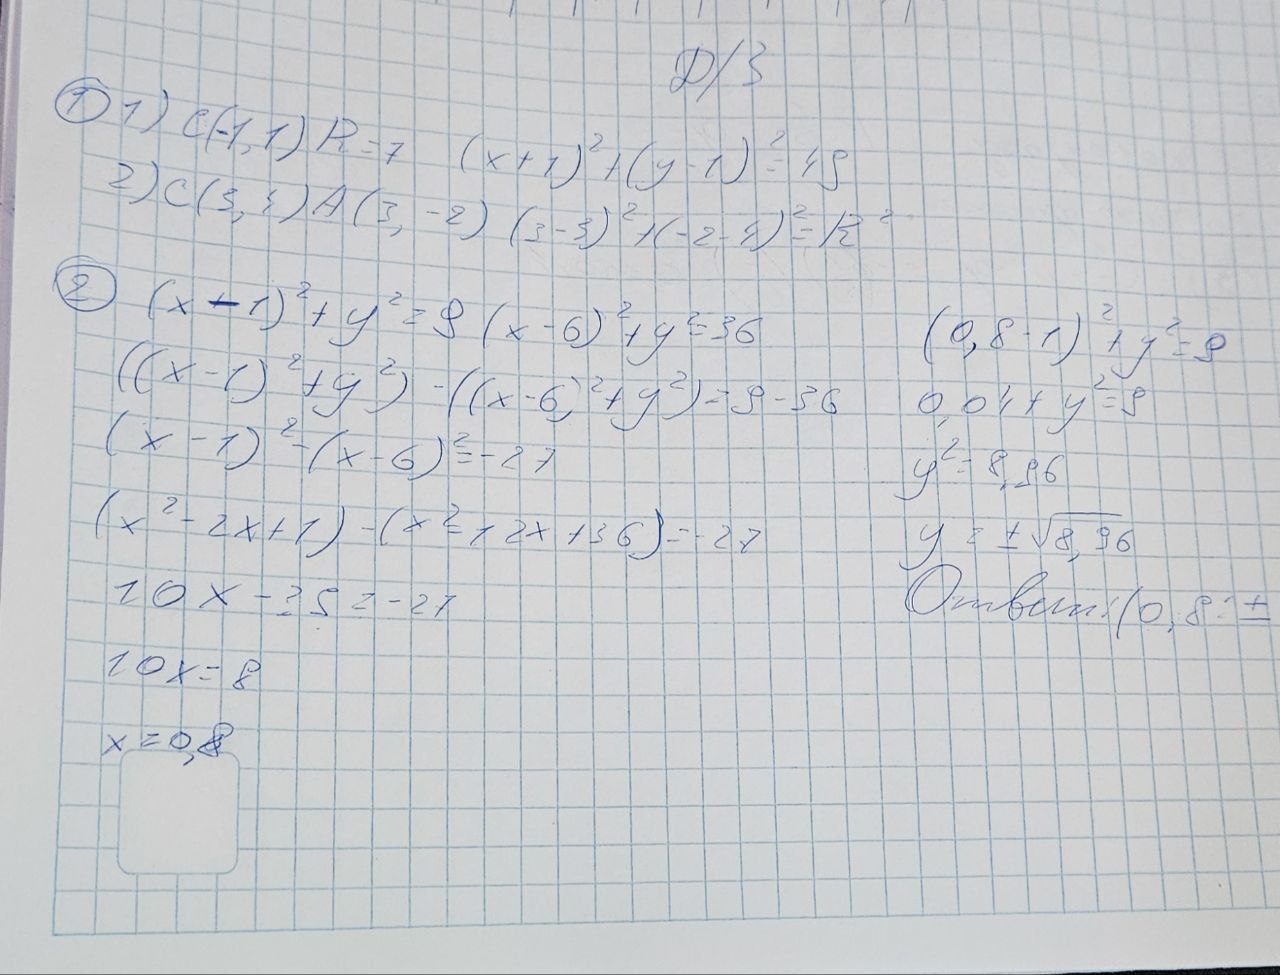 Д/З
① 1) C(-1,1) R=7 (x+1)²+(y-1)²=49
2) C(3,4) A(3,-2) (3-3)²+(-2-4)²=R²
② (x-1)²+y²=9 (x-6)²+y²=36
((x-1)²+y²)-((x-6)²+y²)=9-36
(x-1)²-(x-6)²=-27
(x²-2x+1)-(x²-12x+36)=-27
10x-35=-27
10x=8
x=0,8
(0,8-1)²+y²=9
0,04+y²=9
y²=8,96
y=±√8,96
Ответ:(0,8;±